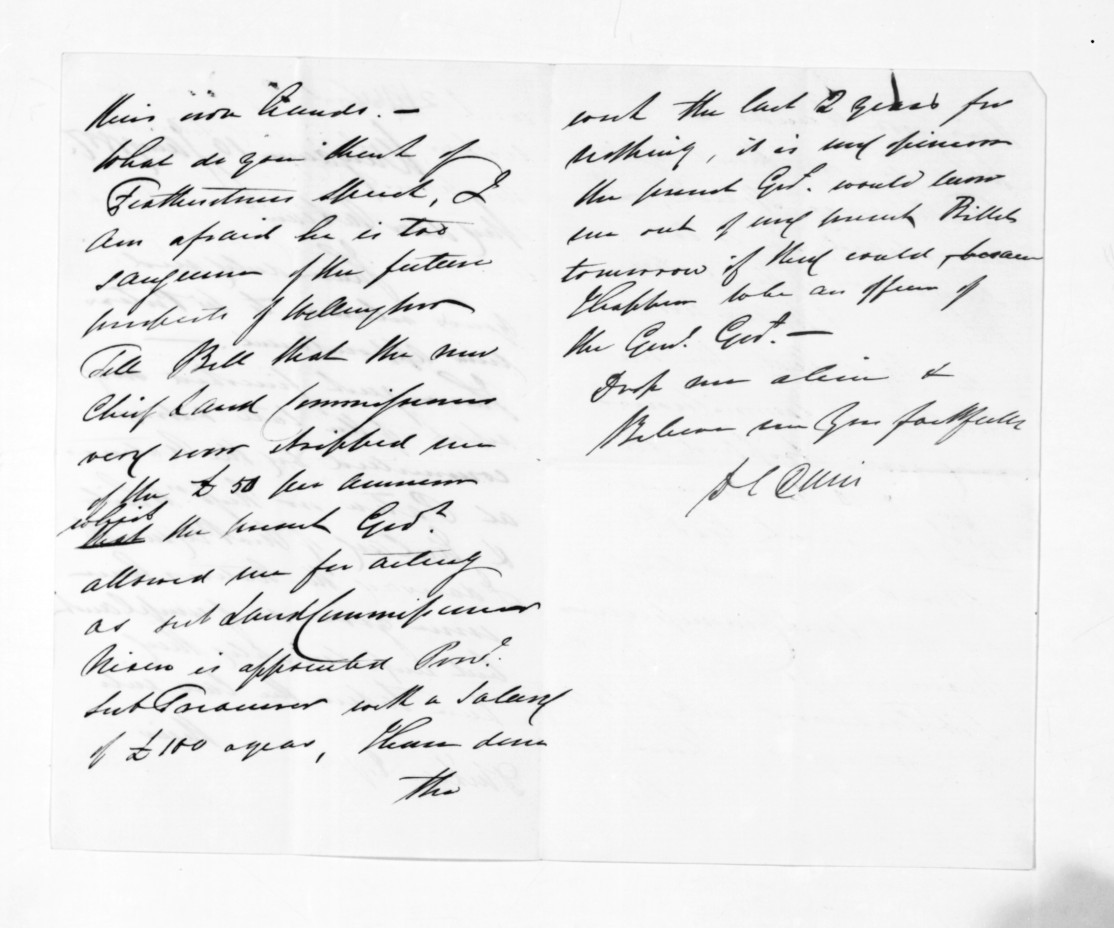 their own hands. —
What do you think of
Featherstons speech, I
am afraid he is too
sanguine of the future
prospects of Wellington
Tell Bell that the new
Chief Land Commissioner
very soon stripped me
of the £50 per annum
which
that the present Govt.
allowed me for acting
as sub Land Commissioner
is appointed Provl.
sub Treasurer with a salary
of £100 a year, I have done
the
work the last 2 years for
nothing, it is my opinion
the present Govt. would
me out of my present Billet
tomorrow if they could, because
I happen to be an officer of
the Genl. Govt. —
Drop me a line &
Believe me Yrs faithfully